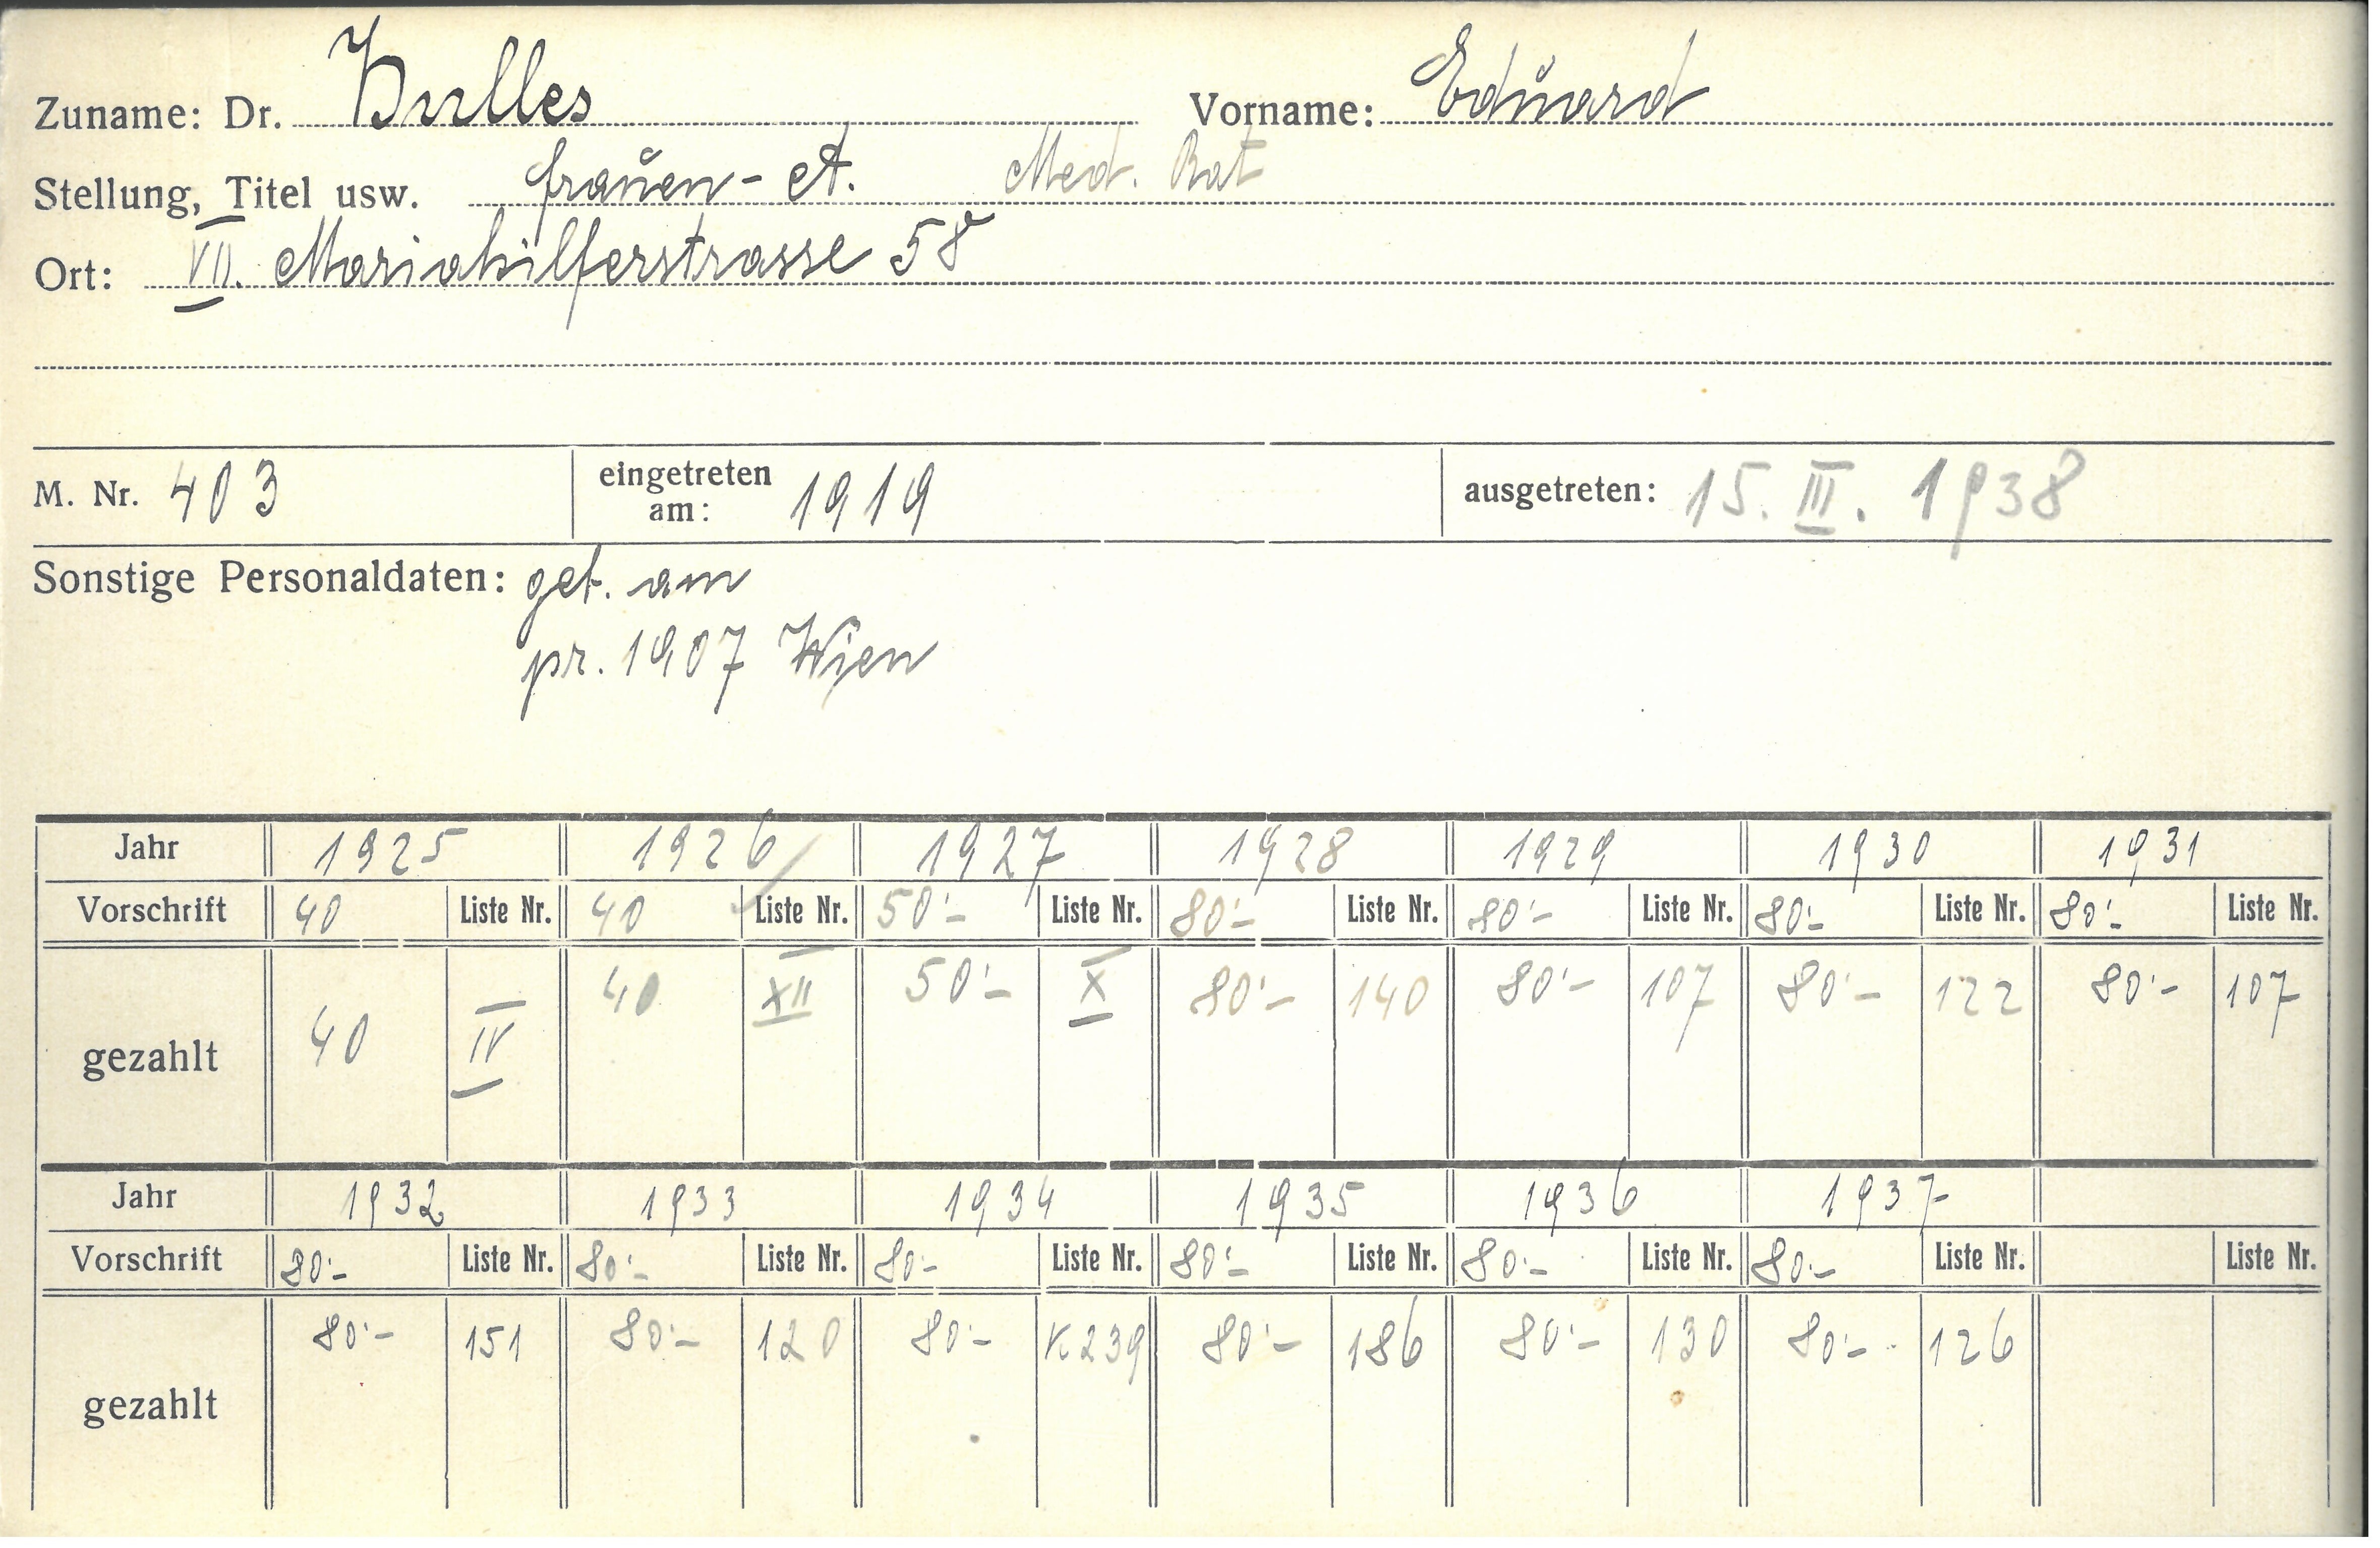 Zuname: Dr. Hulles Vorname: Eduard
Stellung, Titel usw. Frauen-A. Med. Rat
Ort: VII. Mariahilferstrasse 58
M. Nr. 403 eingetreten am: 1919 ausgetreten: 15. III. 1938
Sonstige Personaldaten: geb. am
pr. 1907 Wien
Jahr 1925 1926 1927 1928 1929 1930 1931
Vorschrift 40 Liste Nr. 40 Liste Nr. 50'- Liste Nr. 80'- Liste Nr. 80'- Liste Nr. 80'- Liste Nr. 80'- Liste Nr.
gezahlt 40 IV 40 XII 50'- X 80'- 140 80'- 107 80'- 122 80'- 107
Jahr 1932 1933 1934 1935 1936 1937
Vorschrift 80'- Liste Nr. 80'- Liste Nr. 80'- Liste Nr. 80'- Liste Nr. 80'- Liste Nr. 80'- Liste Nr. Liste Nr.
gezahlt 80'- 151 80'- 120 80'- K239 80'- 186 80'- 130 80'- 126